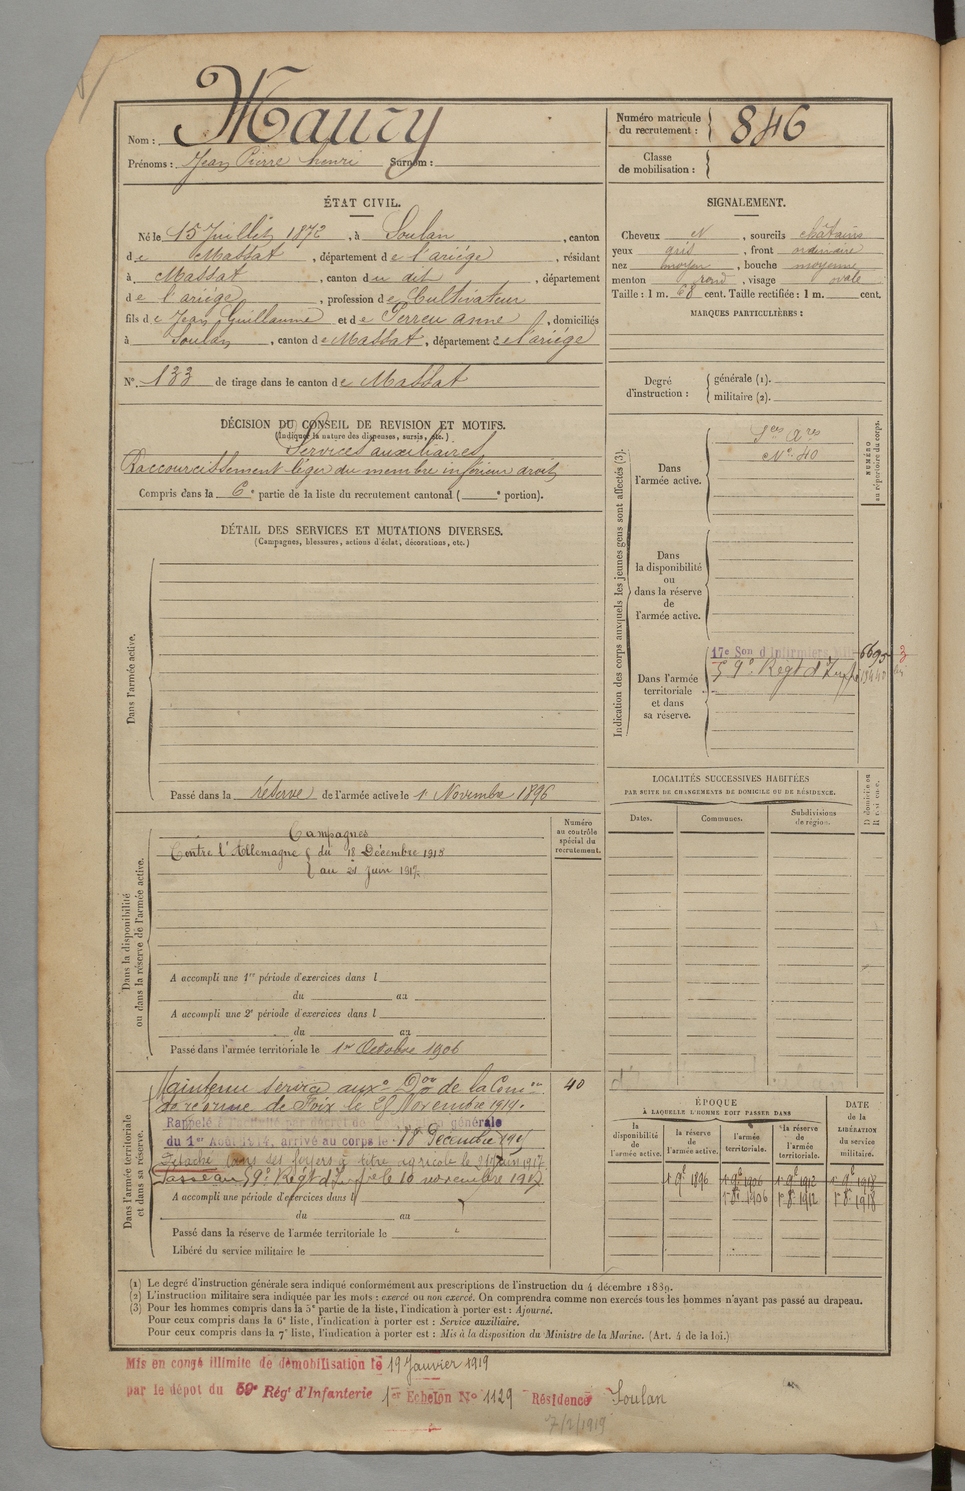 Nom : Maury
Prénoms : Jean Pierre henri Surnom :
Numéro matricule du recrutement : 846
Classe de mobilisation :
ÉTAT CIVIL.
Né le 15 Juillet 1872, à Soulan, canton
de Massat, département de l'ariège, résidant
à Massat, canton du dit, département
de l'ariège, profession de Cultivateur
fils de Jean Guillaume et de Serreu anne, domiciliés
à Soulan, canton de Massat, département de l'ariège
N°. 133 de tirage dans le canton de Massat
SIGNALEMENT.
Cheveux N, sourcils châtains
yeux gris, front ordinaire
nez moyen, bouche moyenne
menton rond, visage ovale
Taille : 1 m. 68 cent. Taille rectifiée : 1 m. cent.
MARQUES PARTICULIÈRES :
Degré d'instruction : générale (1).
militaire (2).
DÉCISION DU CONSEIL DE REVISION ET MOTIFS.
(Indiquer la nature des dispenses, sursis, etc.)
Services auxiliaires
Raccourcissement léger du membre inférieur droit
Compris dans la 6e partie de la liste du recrutement cantonal ( e portion).
DÉTAIL DES SERVICES ET MUTATIONS DIVERSES.
(Campagnes, blessures, actions d'éclat, décorations, etc.)
Dans l'armée active.
Passé dans la réserve de l'armée active le 1 Novembre 1896
Indication des corps auxquels les jeunes gens sont affectés (3).
NUMÉRO au répertoire du corps.
Dans l'armée active.
Sces Ares
N° 40
Dans la disponibilité ou dans la réserve de l'armée active.
Dans l'armée territoriale et dans sa réserve.
17e Son d'Infirmiers 6695
59e Regt d'Infie
LOCALITÉS SUCCESSIVES HABITÉES
PAR SUITE DE CHANGEMENTS DE DOMICILE OU DE RÉSIDENCE.
Dates. Communes. Subdivisions de région.
Dans la disponibilité ou dans la réserve de l'armée active.
Numéro au contrôle spécial du recrutement.
Campagnes
Contre l'Allemagne { du 18 Décembre 1915
{ au 21 Juin 1917
A accompli une 1re période d'exercices dans l
du au
A accompli une 2e période d'exercices dans l
du au
Passé dans l'armée territoriale le 1er Octobre 1906
Dans l'armée territoriale et dans sa réserve.
Maintenu service auxe Don de la Comon 40
de réforme de Foix le 29 Novembre 1914.
Rappelé à l'activité par décret de générale
du 1er Août 1914, arrivé au corps le 18 Décembre 1915
Détaché dans ses foyers à titre agricole le 21 Juin 1917
Passé au 59e Regt d'Infie le 10 novembre 1917
A accompli une période d'exercices dans l
du au
Passé dans la réserve de l'armée territoriale le
Libéré du service militaire le
ÉPOQUE
À LAQUELLE L'HOMME DOIT PASSER DANS
la disponibilité de l'armée active. la réserve de l'armée active. l'armée territoriale. la réserve de l'armée territoriale.
DATE de la LIBÉRATION du service militaire.
1r 9e 1896 1r 9e 1906 1r 9e 1912 1r 9e 1918
1r 8e 1906 1r 8e 1912 1r 8e 1918
(1) Le degré d'instruction générale sera indiqué conformément aux prescriptions de l'instruction du 4 décembre 1889.
(2) L'instruction militaire sera indiquée par les mots : exercé ou non exercé. On comprendra comme non exercés tous les hommes n'ayant pas passé au drapeau.
(3) Pour les hommes compris dans la 5e partie de la liste, l'indication à porter est : Ajourné.
Pour ceux compris dans la 6e liste, l'indication à porter est : Service auxiliaire.
Pour ceux compris dans la 7e liste, l'indication à porter est : Mis à la disposition du Ministre de la Marine. (Art. 4 de la loi.)
Mis en congé illimité de démobilisation le 19 Janvier 1919
par le dépôt du 59e Régt d'Infanterie 1er Echelon N° 1129 Résidence Soulan
7/2/1919